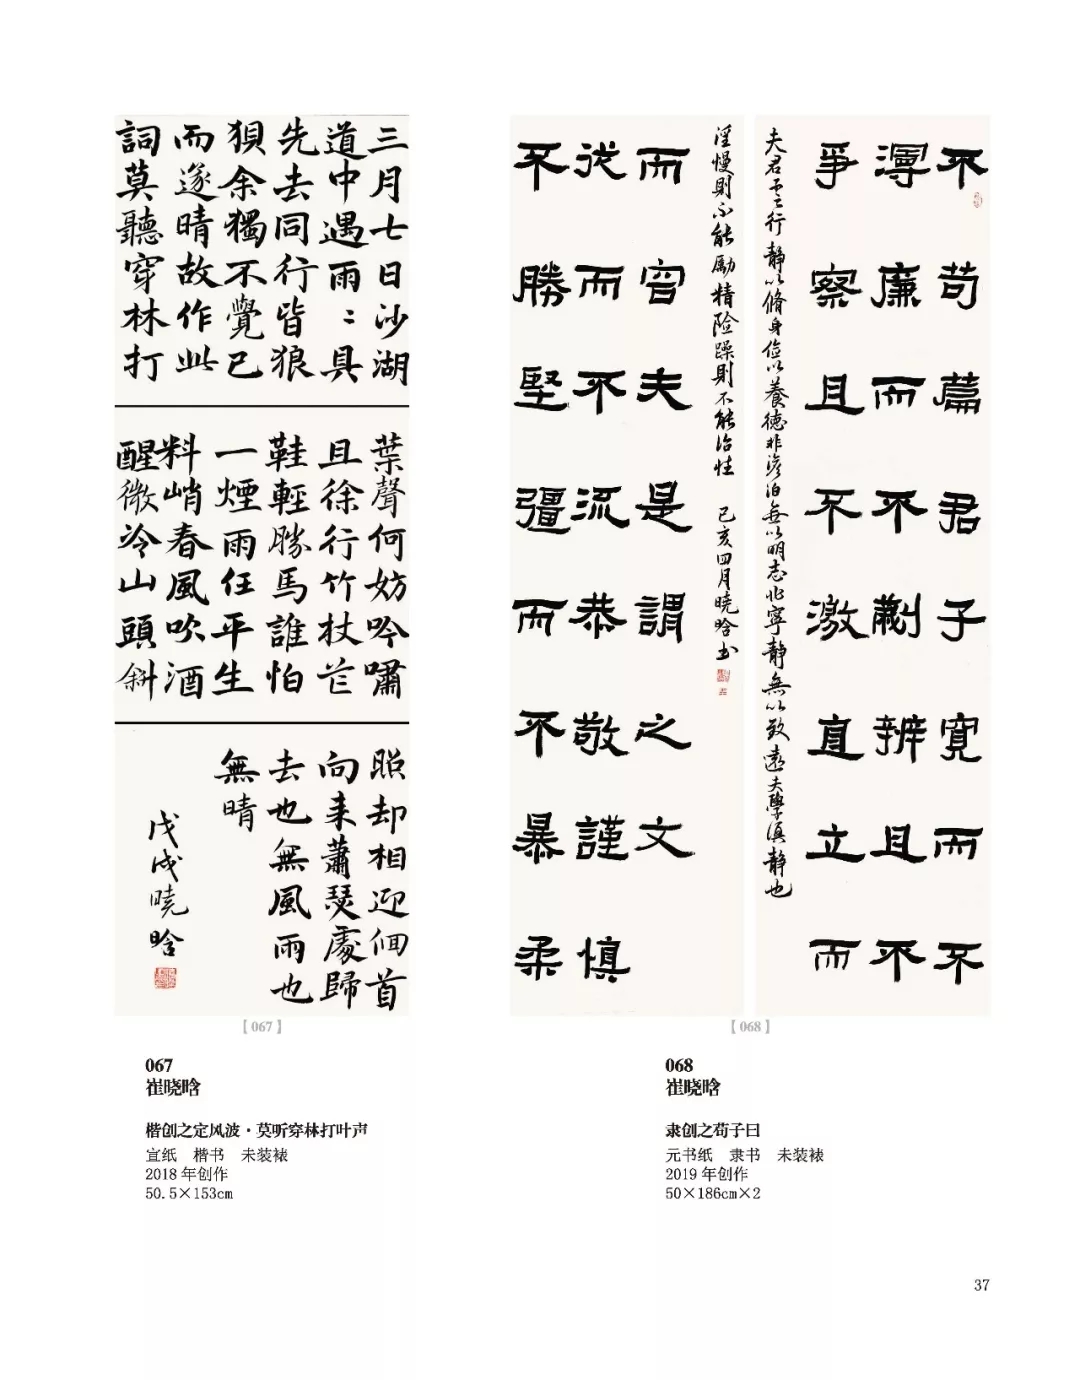 三月七日沙湖
道中遇雨〻具
先去同行皆狼
狽余獨不覺已
而遂晴故作此
詞莫聽穿林打
葉聲何妨吟嘯
且徐行竹杖芒
鞋輕勝馬誰怕
一煙雨任平生
料峭春風吹酒
醒微冷山頭斜
照却相迎佪首
向来蕭瑟處歸
去也無風雨也
無晴
戊戌曉晗
【067】
067
崔晓晗
楷创之定风波·莫听穿林打叶声
宣纸 楷书 未装裱
2018 年创作
50.5×153cm
不苟篇君子寬而不
廉而不劌辨且不
爭察且不激直立而
不勝堅彊而不暴柔
從而不流恭敬謹慎
而容夫是謂之文
夫君子之行靜以脩身儉以養德非澹泊無以明志非寧靜無以致遠夫學須靜也
淫慢則不能勵精險躁則不能治性 己亥四月曉晗书
【068】
068
崔晓晗
隶创之荀子曰
元书纸 隶书 未装裱
2019 年创作
50×186cm×2
37